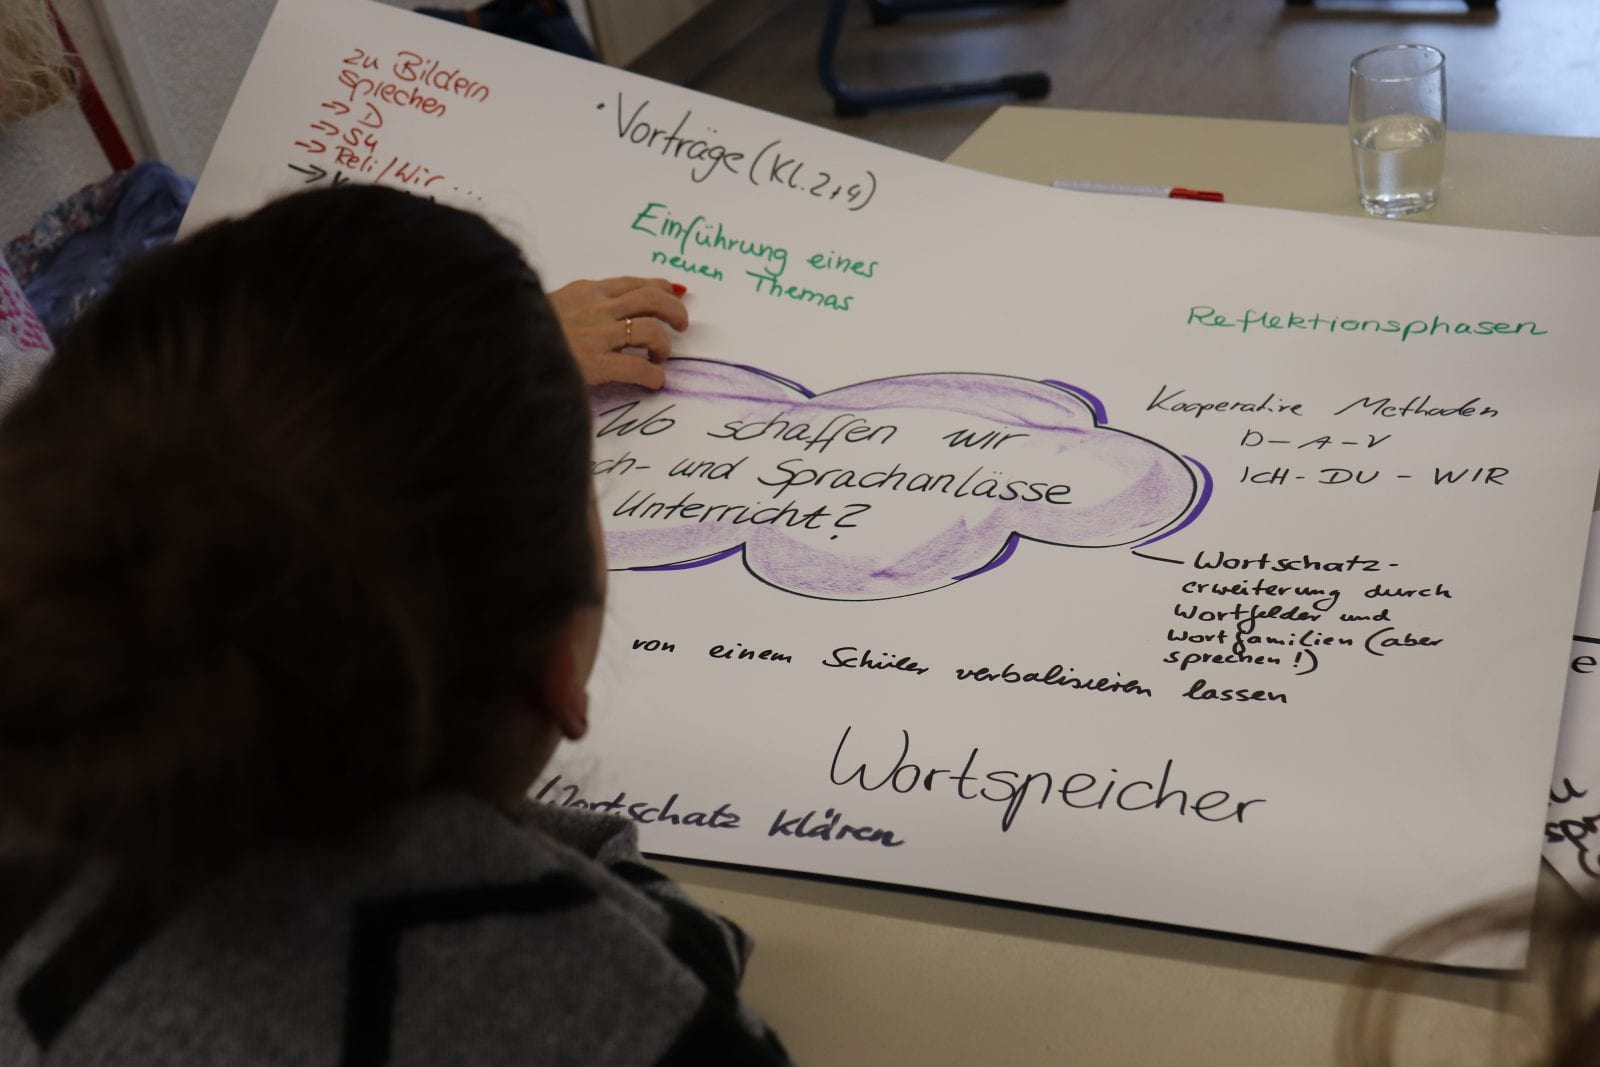 zu Bildern
sprechen
→ D
→ SU
→ Reli/Wir...
→
• Vorträge (Kl. 2+4)
Einführung eines
neuen Themas
Reflektionsphasen
Wo schaffen wir
ch- und Sprachanlässe
Unterricht?
Kooperative Methoden
D - A - V
ICH - DU - WIR
Wortschatz-
erweiterung durch
Wortfelder und
Wortfamilien (aber
sprechen!)
von einem Schüler verbalisieren lassen
Wortspeicher
Wortschatz klären